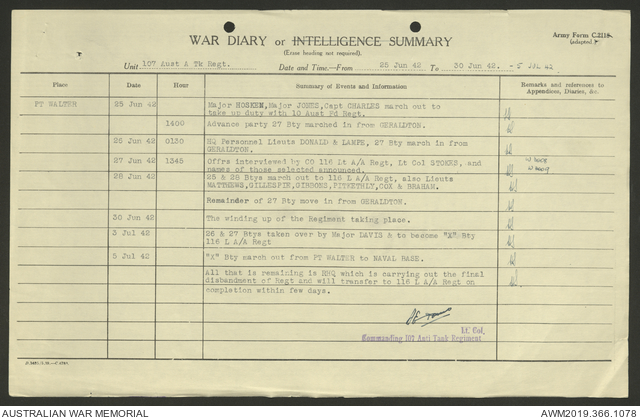 WAR DIARY or INTELLIGENCE SUMMARY
(Erase heading not required).
Army Form C.2118
(adapted)
Unit 107 Aust A Tk Regt. Date and Time.—From 25 Jun 42 To 30 Jun 42. - 5 JUL 42
Place Date Hour Summary of Events and Information Remarks and references to Appendices, Diaries, &c.
PT WALTER 25 Jun 42 Major HOSKEM, Major JONES, Capt CHARLES march out to
take up duty with 10 Aust Fd Regt.
1400 Advance party 27 Bty marched in from GERALDTON.
26 Jun 42 0130 HQ Personnel Lieuts DONALD & LAMPE, 27 Bty march in from
GERALDTON.
27 Jun 42 1345 Offrs interviewed by CO 116 Lt A/A Regt, Lt Col STOKES, and
names of those selected announced.
28 Jun 42 25 & 28 Btys march out to 116 L A/A Regt, also Lieuts
MATTHEWS, GILLESPIE, GIBBONS, PITKETHLY, COX & BRAHAM.
Remainder of 27 Bty move in from GERALDTON.
30 Jun 42 The winding up of the Regiment taking place.
3 Jul 42 26 & 27 Btys taken over by Major DAVIS & to become "X" Bty
116 L A/A Regt
5 Jul 42 "X" Bty march out from PT WALTER to NAVAL BASE.
All that is remaining is RHQ which is carrying out the final
disbandment of Regt and will transfer to 116 L A/A Regt on
completion within few days.
Lt. Col.
Commanding 107 Anti Tank Regiment
AUSTRALIAN WAR MEMORIAL AWM2019.366.1078